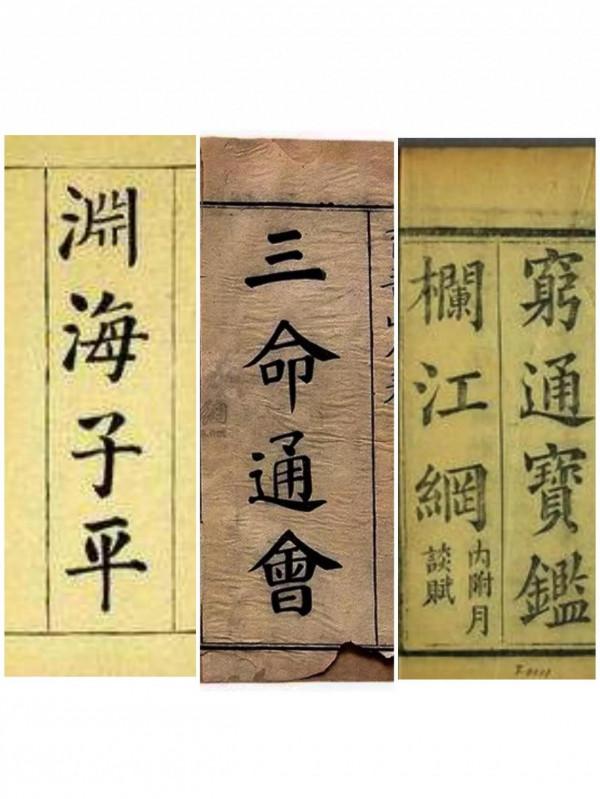 淵海子平
三命通會
窮通寶鑑
欄江網
內附月
談賦